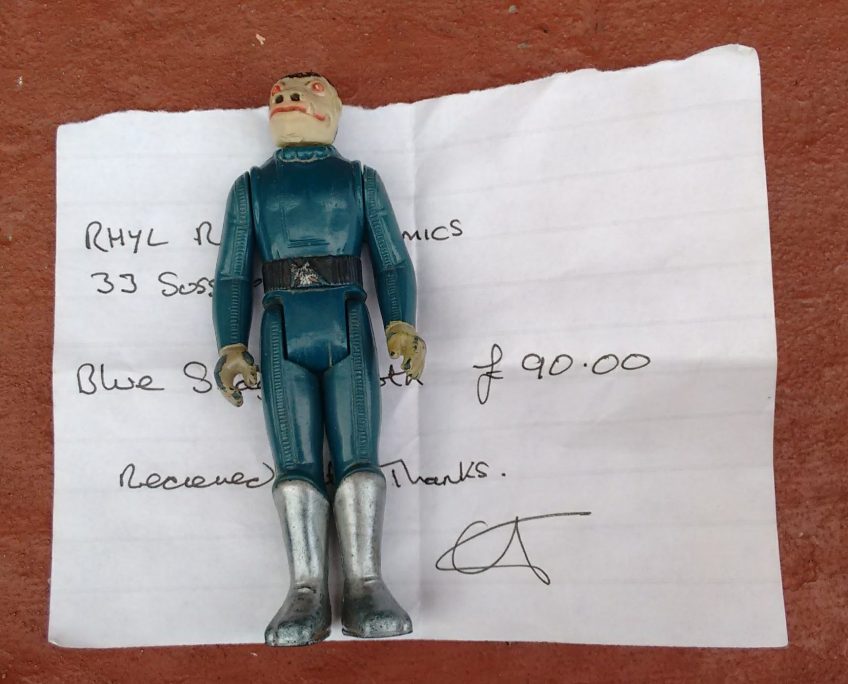 RHYL R MICS
33 Suss
Blue S £90.00
Recieved Thanks.